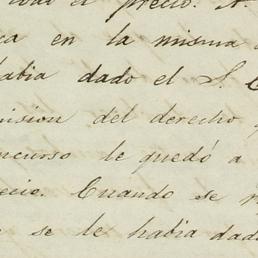 el precio. A.
en la misma
habia dado el S.
del derecho
concurso le quedó a
precio. Cuando se
se le habia dado